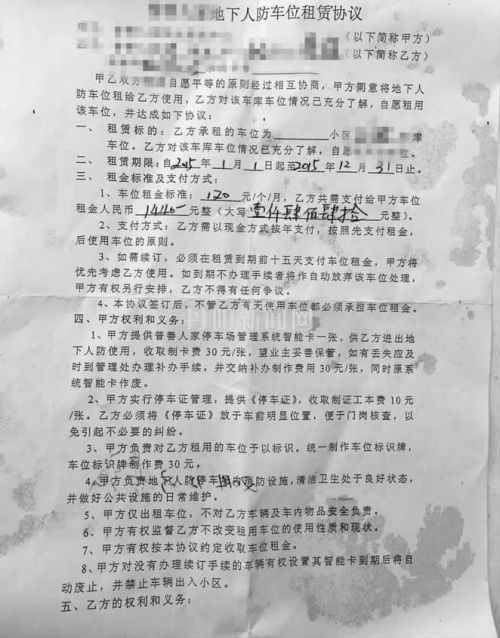 地下人防车位租赁协议
甲 (以下简称甲方)
乙 (以下简称乙方)
甲乙双方根据自愿平等的原则经过相互协商,甲方同意将地下人
防车位租给乙方使用,乙方对该车库车位情况已充分了解,自愿租用
该车位,并达成如下协议:
一、 租赁标的:乙方承租的车位为 小区 库
车位。乙方对该车库车位情况已充分了解,自愿 车位。
二、 租赁期限:自2015年1月1日起至2015年12月31日止。
三、 租金标准及支付方式:
1、车位租金标准:120元/个/月,乙方共需支付给甲方车位
租金人民币1440元整(大写壹仟肆佰肆拾元整)。
2、支付方式:乙方需以现金方式按年支付,按照先支付租金,
后使用车位的原则。
3、如需续订,必须在租赁到期前十五天支付车位租金,甲方将
优先考虑乙方使用。如到期不办理手续者将作自动放弃该车位处理,
甲方有权另行安排,乙方不得有任何争议。
4、本协议签订后,不管乙方有无使用车位都必须承担车位租金。
四、甲方权利和义务:
1、甲方提供普善人家停车场管理系统智能卡一张,供乙方进出地
下人防使用,收取制卡费30元/张,望业主妥善保管,如有丢失应及
时到管理处办理补办手续,并交纳补办制作费用30元/张,同时原系
统智能卡作废。
2、甲方实行停车证管理,提供《停车证》,收取制证工本费10元
/张。乙方必须将《停车证》放于车前明显位置,便于门岗核查,以
免引起不必要的纠纷。
3、甲方负责对乙方租用的车位予以标识。统一制作车位标识牌,
车位标识牌制作费30元。
4、甲方负责地 人防停车 消防设施,清洁卫生处于良好状态,
并做好公共设施的日常维护。
5、甲方仅出租车位,不对乙方车辆及车内物品安全负责。
6、甲方有权监督乙方不改变租用车位的使用性质和现状。
7、甲方有权按本协议约定收取车位租金。
8、甲方对没有办理续订手续的车辆有权设置其智能卡到期后将自
动废止,并禁止车辆出入小区。
五、乙方的权利和义务: